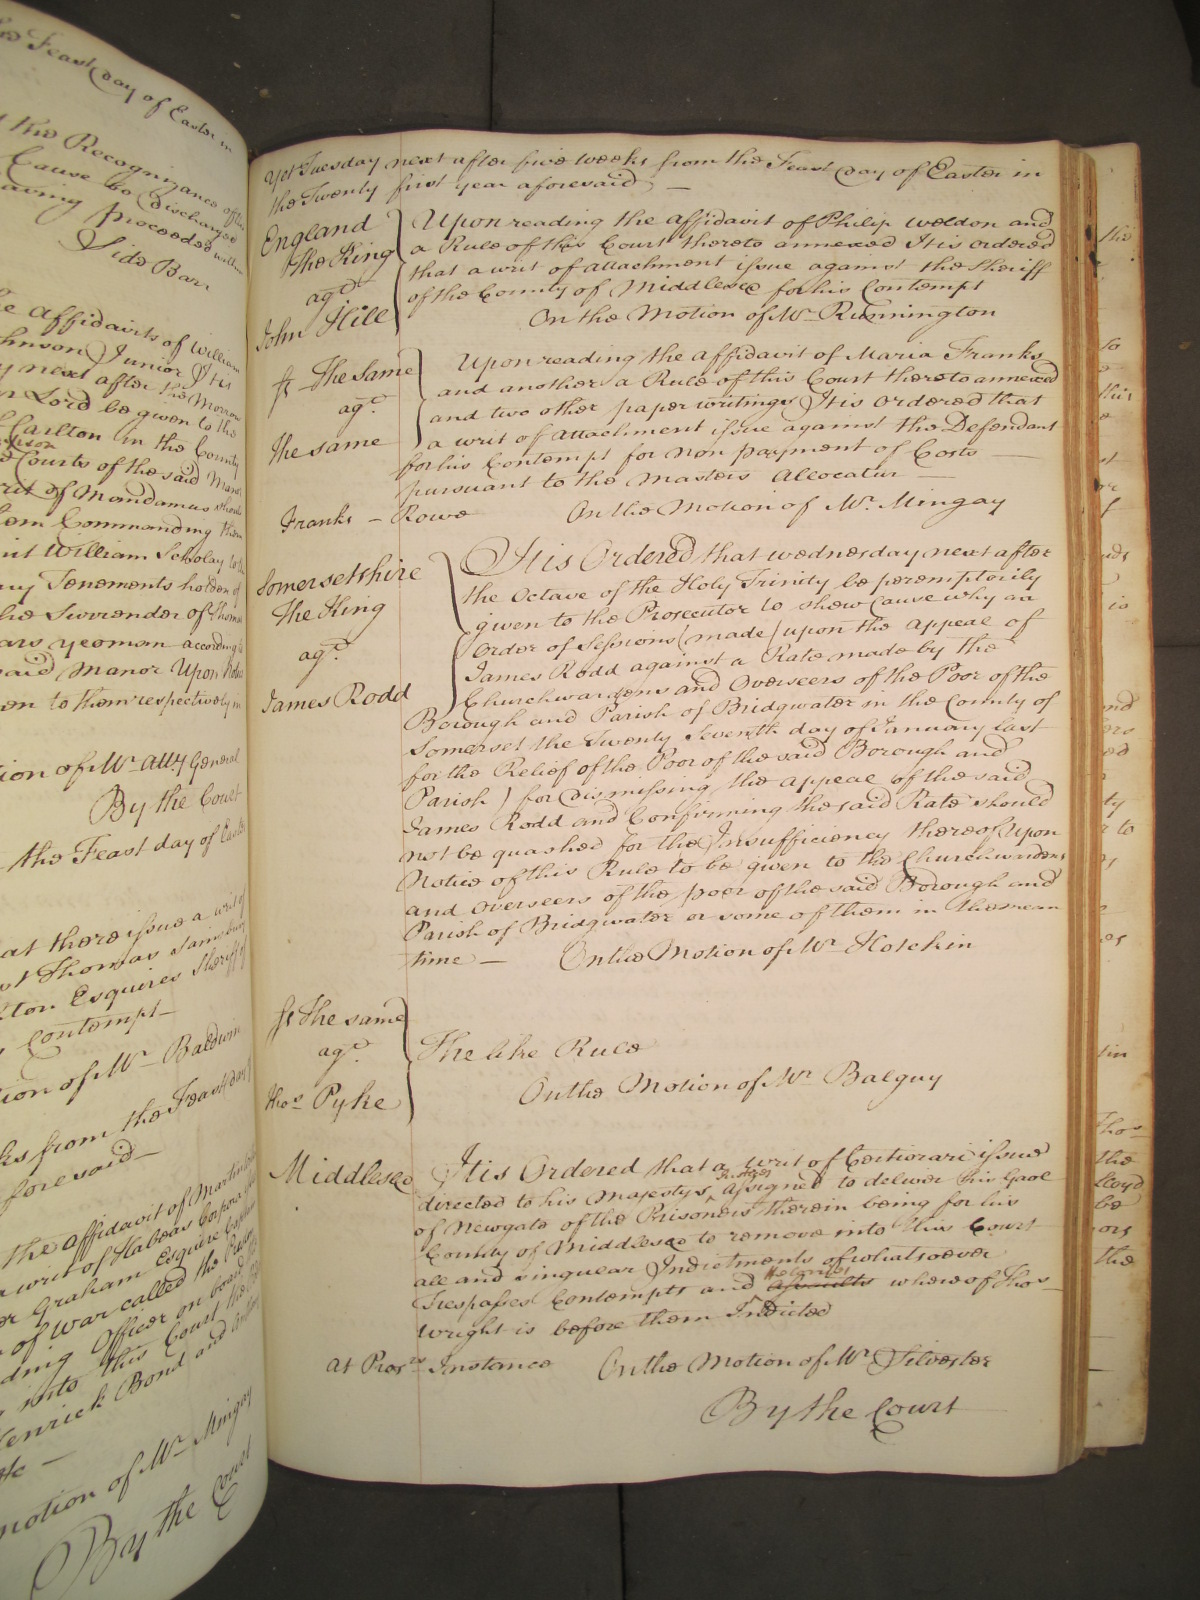 Feast day of Easter in
the Recognizance of the
Cause be discharged
having proceeded within
Side Bar
Affidavits of William
Johnson Junior It is
next after the Morrow
Lord be given to the
Carlton in the County
Courts of the said Manor
writ of Mandamus should
them Commanding them
William Scholay to the
any Tenements holden of
the Surrender of Thomas
yeoman according to
said Manor Upon Notice
to them respectively in
of Mr. Atty General
By the Court
the Feast day of Easter
that there issue a writ of
Thomas Sainsbury
Esquires Sheriff of
Contempt
of Mr. Baldwin
from the Feast day
foresaid
the Affidavit of Martin
writ of Habeas Corpora
Graham Esquire
of War called the
Officer on board
into this Court the
Kenrick Bond and
motion of Mr. Mingay
By the Court
Yet Tuesday next after five weeks from the Feast day of Easter in
the Twenty first year aforesaid —
England
The King
agt.
John Hill
Upon reading the affidavit of Philip Weldon and
a Rule of this Court thereto annexed It is ordered
that a writ of attachment issue against the Sheriff
of the County of Middlesex for his Contempt
On the Motion of Mr. Runnington
The Same
agt.
the same
Upon reading the affidavit of Maria Franks
and another a Rule of this Court thereto annexed
and two other paper writings It is ordered that
a writ of attachment issue against the Defendant
for his Contempt for non payment of Costs —
pursuant to the Masters Allocatur —
Franks – Rowe On the Motion of Mr. Mingay
Somersetshire
The King
agt.
James Rodd
It is Ordered that wednesday next after
the Octave of the Holy Trinity be peremptorily
given to the Prosecutor to shew Cause why an
Order of Sessions (made) upon the Appeal of
James Rodd against a Rate made by the
Churchwardens and Overseers of the Poor of the
Borough and Parish of Bridgwater in the County of
Somerset the Twenty Seventh day of January last
for the Relief of the Poor of the said Borough and
Parish) for dismissing the appeal of the said
James Rodd and Confirming the said Rate should
not be quashed for the Insufficiency thereof Upon
Notice of this Rule to be given to the Churchwardens
and overseers of the poor of the said Borough and
Parish of Bridgwater or some of them in the mean
time — On the Motion of Mr. Hotchin
The same
agt.
Thos. Pyke
The like Rule
On the Motion of Mr. Balguy
Middlesex
It is Ordered that a writ of Certiorari issue
directed to his Majestys Justices Assigned to deliver his Gaol
of Newgate of the Prisoners therein being for his
County of Middlesex to remove into this Court
all and singular Indictments of whatsoever
Trespasses Contempts and Felonies Assaults whereof Thos.
Wright is before them Indicted
At Prosrs. Instance On the Motion of Mr. Silvester
By the Court